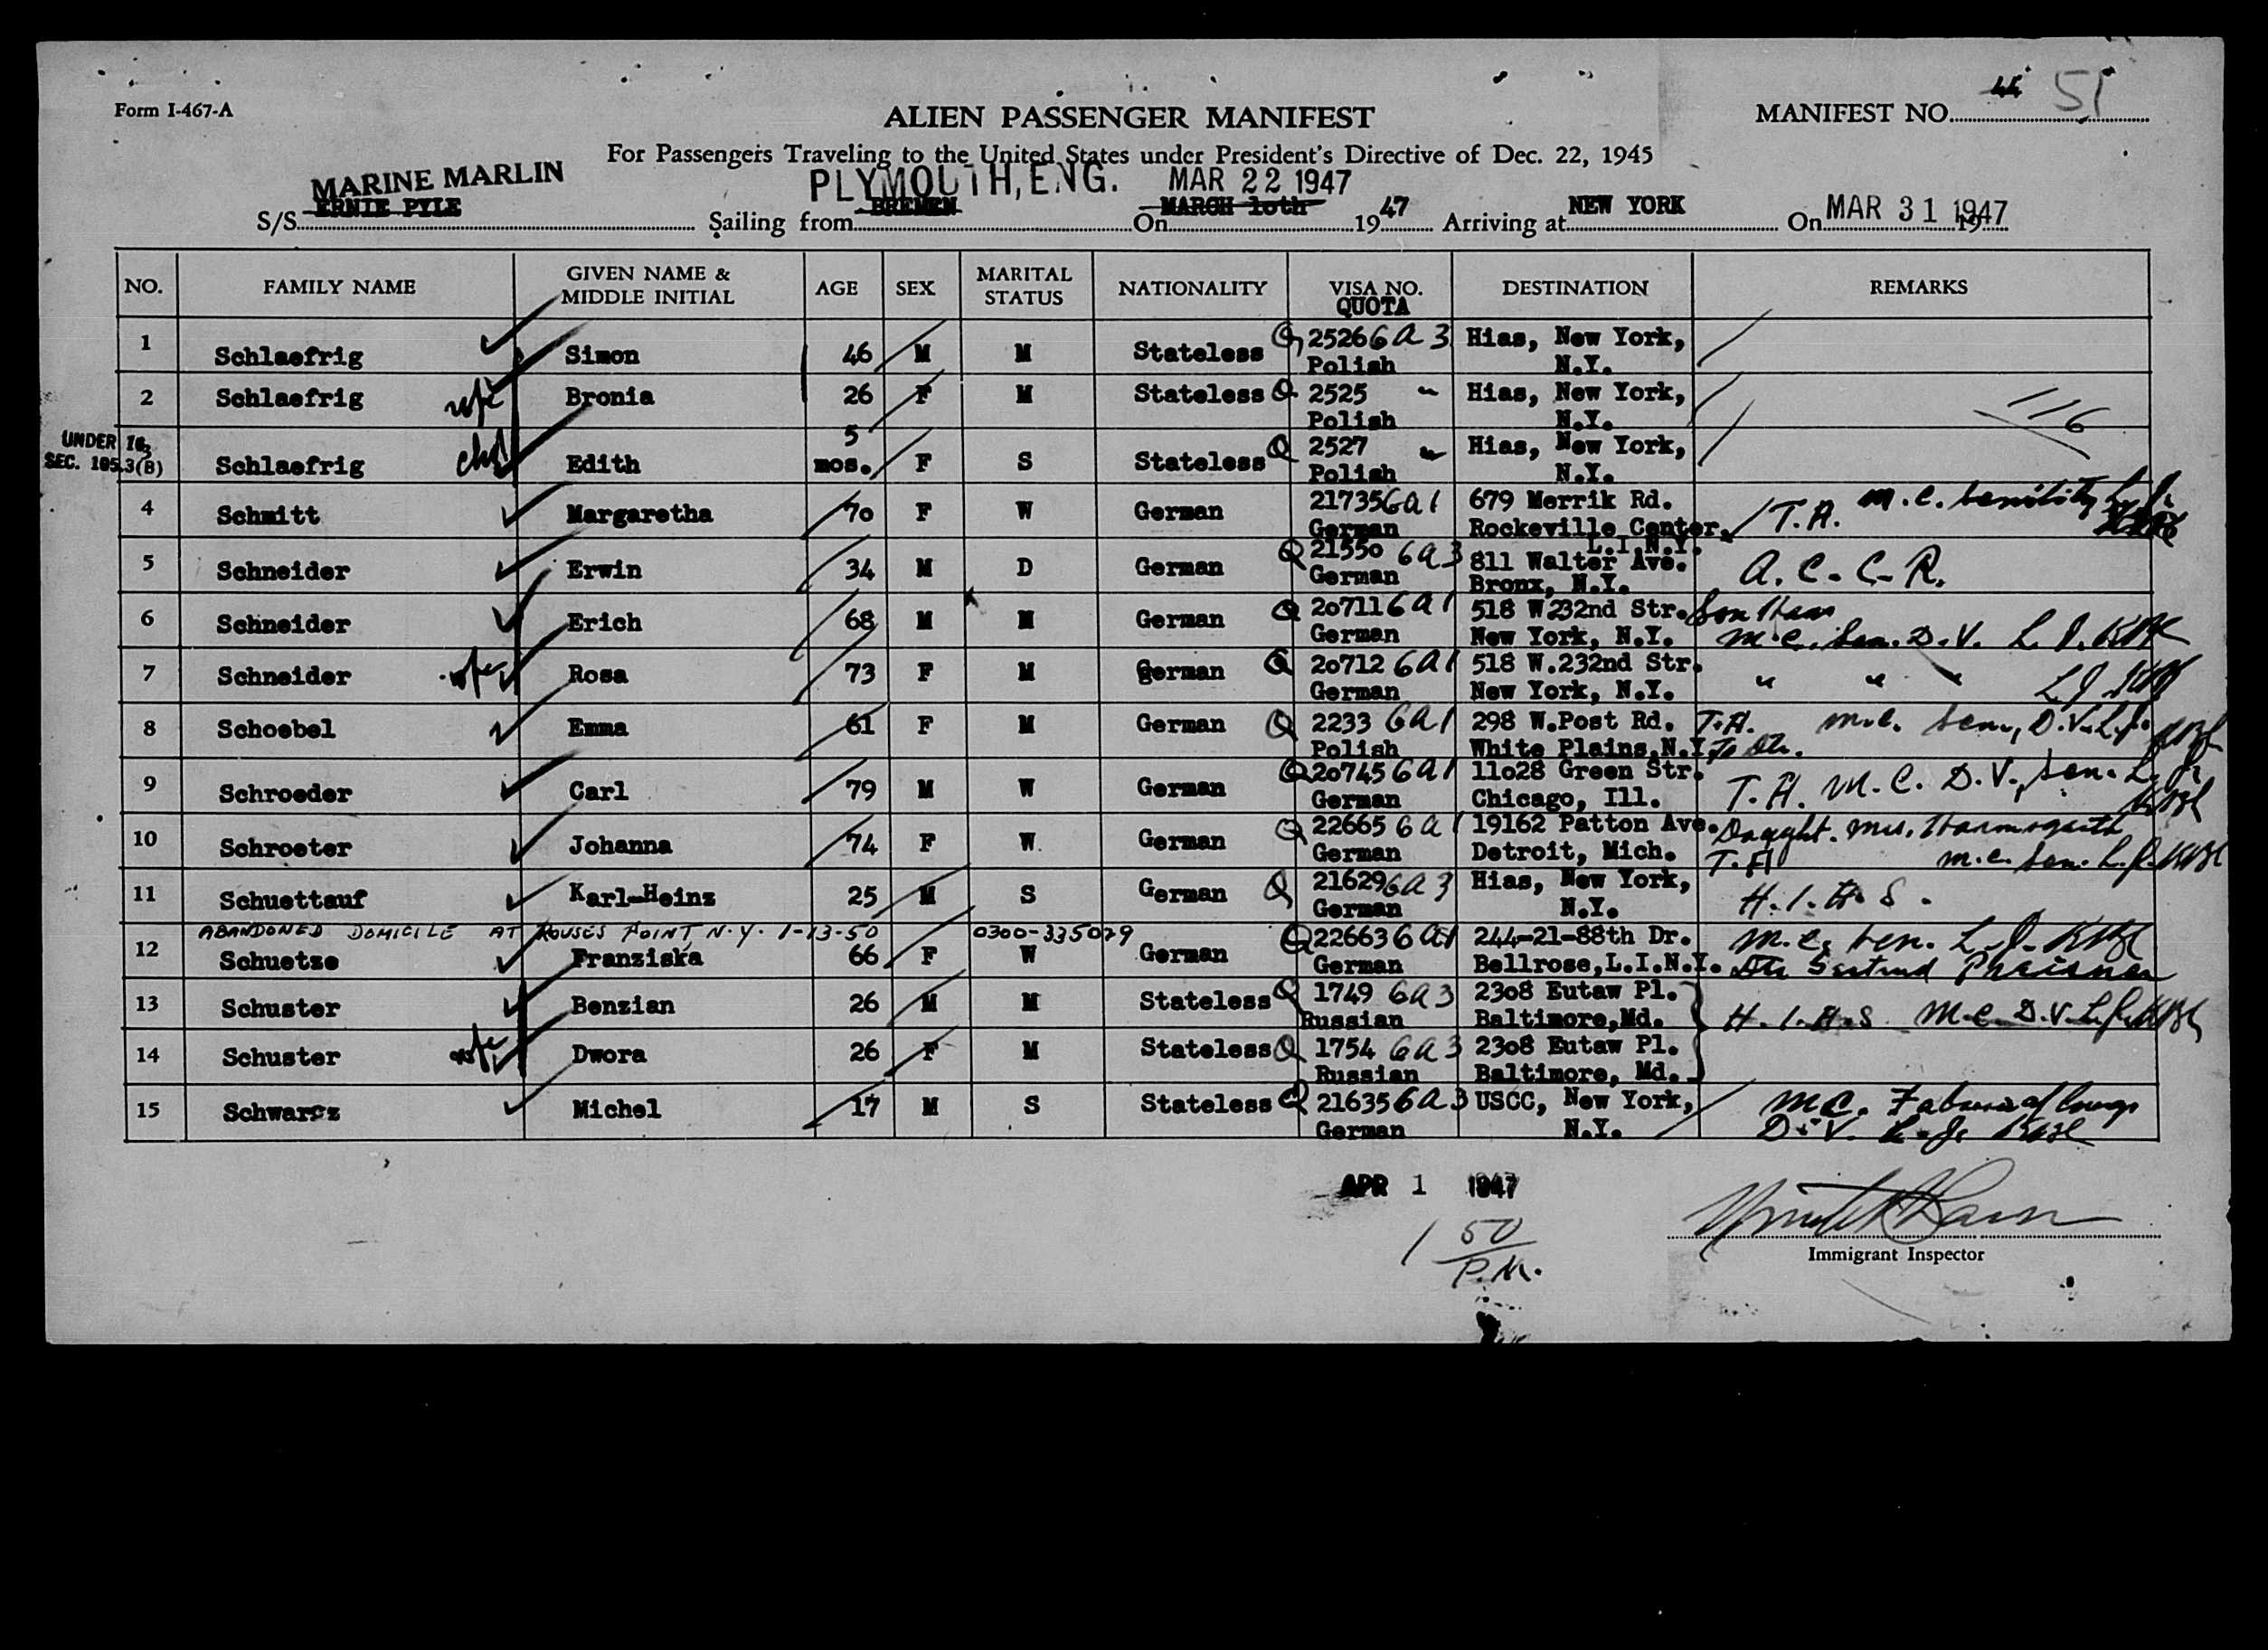 Form I-467-A
ALIEN PASSENGER MANIFEST
MANIFEST NO. 44 51
For Passengers Traveling to the United States under President's Directive of Dec. 22, 1945
MARINE MARLIN PLYMOUTH, ENG. MAR 22 1947
S/S ERNIE PYLE Sailing from BREMEN On MARCH 10th 1947 Arriving at NEW YORK On MAR 31 1947 19
NO. FAMILY NAME GIVEN NAME & MIDDLE INITIAL AGE SEX MARITAL STATUS NATIONALITY VISA NO. QUOTA DESTINATION REMARKS
1 Schlaefrig Simon 46 M M Stateless Q 2526 6a3 Hias, New York,
Polish N.Y.
2 Schlaefrig wfe Bronia 26 F M Stateless Q 2525 " Hias, New York,
Polish N.Y. 116
UNDER 16
SEC. 105.3(B)
3 Schlaefrig chd Edith 5 mos. F S Stateless Q 2527 " Hias, New York,
Polish N.Y.
4 Schmitt Margaretha 70 F W German 21735 6a1 679 Merrik Rd. T.A. M.C. Senility
German Rockeville Center, L.I.N.Y.
5 Schneider Erwin 34 M D German Q 21550 6a3 811 Walter Ave. A.C.C.R.
German Bronx, N.Y.
6 Schneider Erich 68 M M German Q 20711 6a1 518 W232nd Str. Son
German New York, N.Y. M.C. Sen. D.V. L.J.
7 Schneider wfe Rosa 73 F M German Q 20712 6a1 518 W.232nd Str. " " "
German New York, N.Y. L.J.
8 Schoebel Emma 61 F M German Q 2233 6a1 298 W.Post Rd. T.A. M.C. Sen, D.V. L.J.
Polish White Plains,N.Y.
9 Schroeder Carl 79 M W German Q 20745 6a1 11028 Green Str. T.A. M.C. D.V., Sen. L.J.
German Chicago, Ill.
10 Schroeter Johanna 74 F W German Q 22665 6a1 19162 Patton Ave. Daught. Mrs.
German Detroit, Mich. T.A M.C. Sen. L.J.
11 Schuettauf Karl-Heinz 25 M S German Q 21629 6a3 Hias, New York, H.I.A.S.
German N.Y.
ABANDONED DOMICILE AT ROUSES POINT, N.Y. 1-13-50 0300-335079
12 Schuetze Franziska 66 F W German Q 22663 6a1 244-21-88th Dr. M.C. Sen. L.J.
German Bellrose,L.I.N.Y.
13 Schuster Benzian 26 M M Stateless Q 1749 6a3 2308 Eutaw Pl. H.I.A.S M.C. D.V. L.J.
Russian Baltimore,Md.
14 Schuster wfe Dwora 26 F M Stateless Q 1754 6a3 2308 Eutaw Pl.
Russian Baltimore, Md.
15 Schwarcz Michel 17 M S Stateless Q 21635 6a3 USCC, New York, M.C.
German N.Y. D.V. L.J.
APR 1 1947
1 50
P.M.
Immigrant Inspector